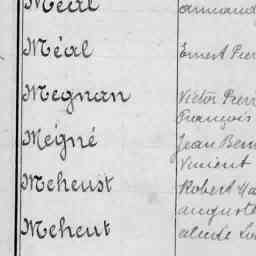 Méal Armand
Méal Ernest Pier
Megnan Victor Pierr
François
Mégné Jean Ben
Vincent
Meheust Robert Ma
auguste
Meheut